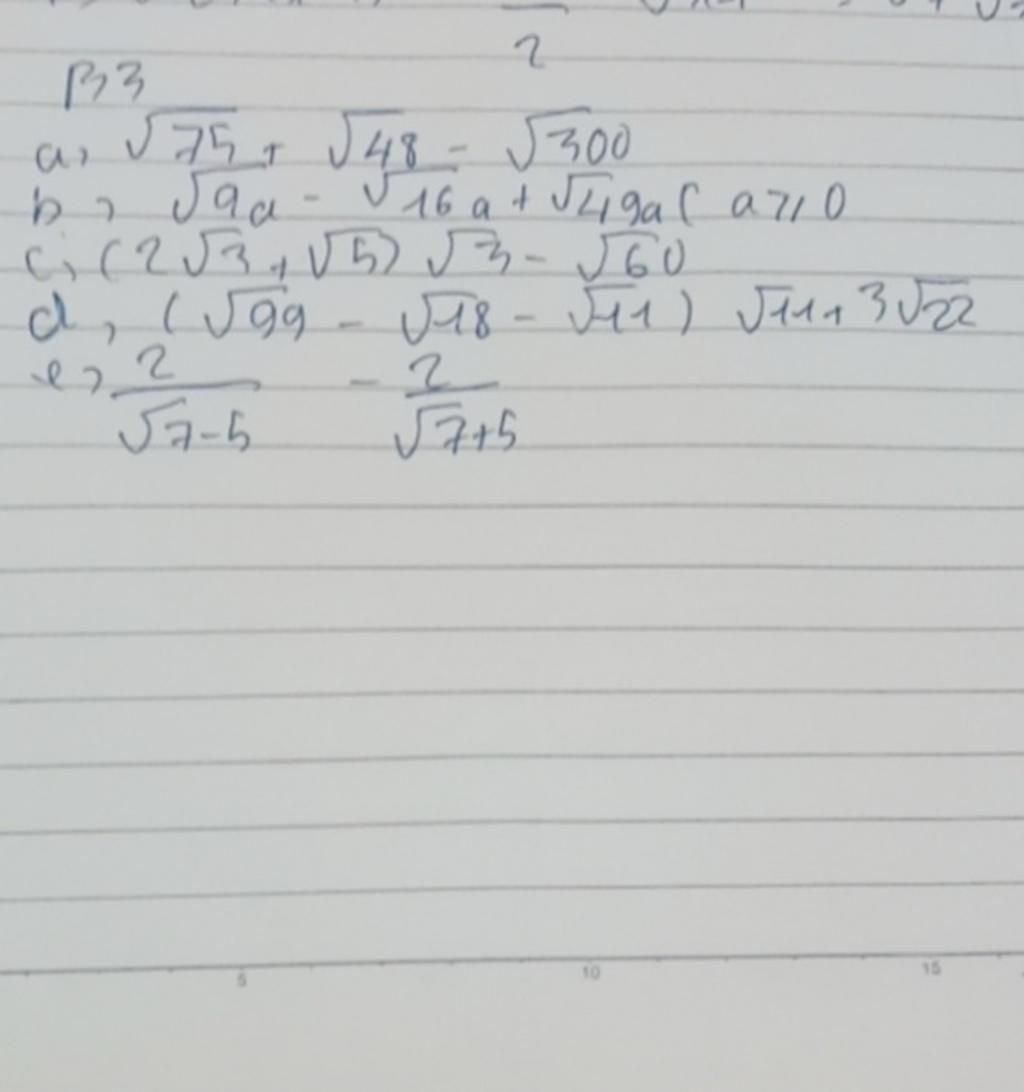 2
B3
a, √75 + √48 - √300
b, √9a - √16a + √49a ( a ≥ 0
c, (2√3 + √5) √3 - √60
d, (√99 - √18 - √11) √11 + 3√22
e, 2/(√7-5) - 2/(√7+5)
5 10 15